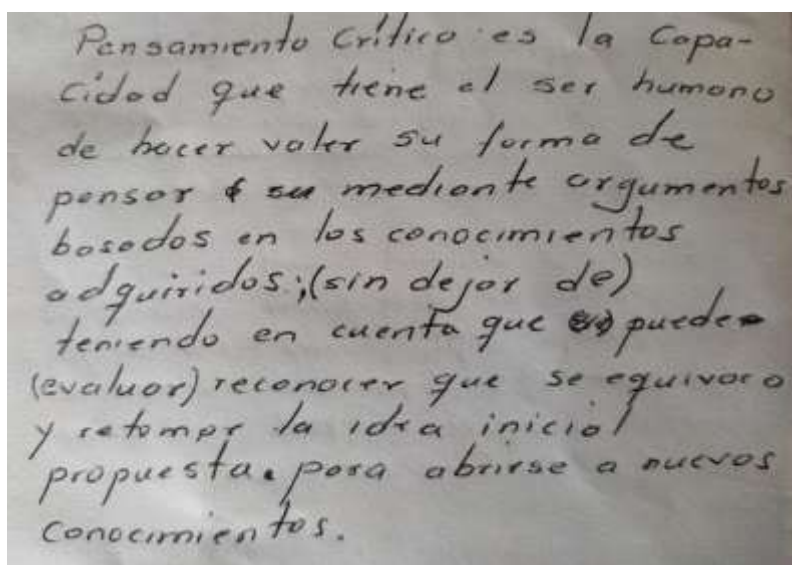 Pensamiento Crítico es la Capa-
cidad que tiene el ser humano
de hacer valer su forma de
pensar su mediante argumentos
basados en los conocimientos
adquiridos; (sin dejar de)
teniendo en cuenta que puede
(evaluar) reconocer que se equivoco
y retomar la idea inicial
propuesta. para abrirse a nuevos
conocimientos.